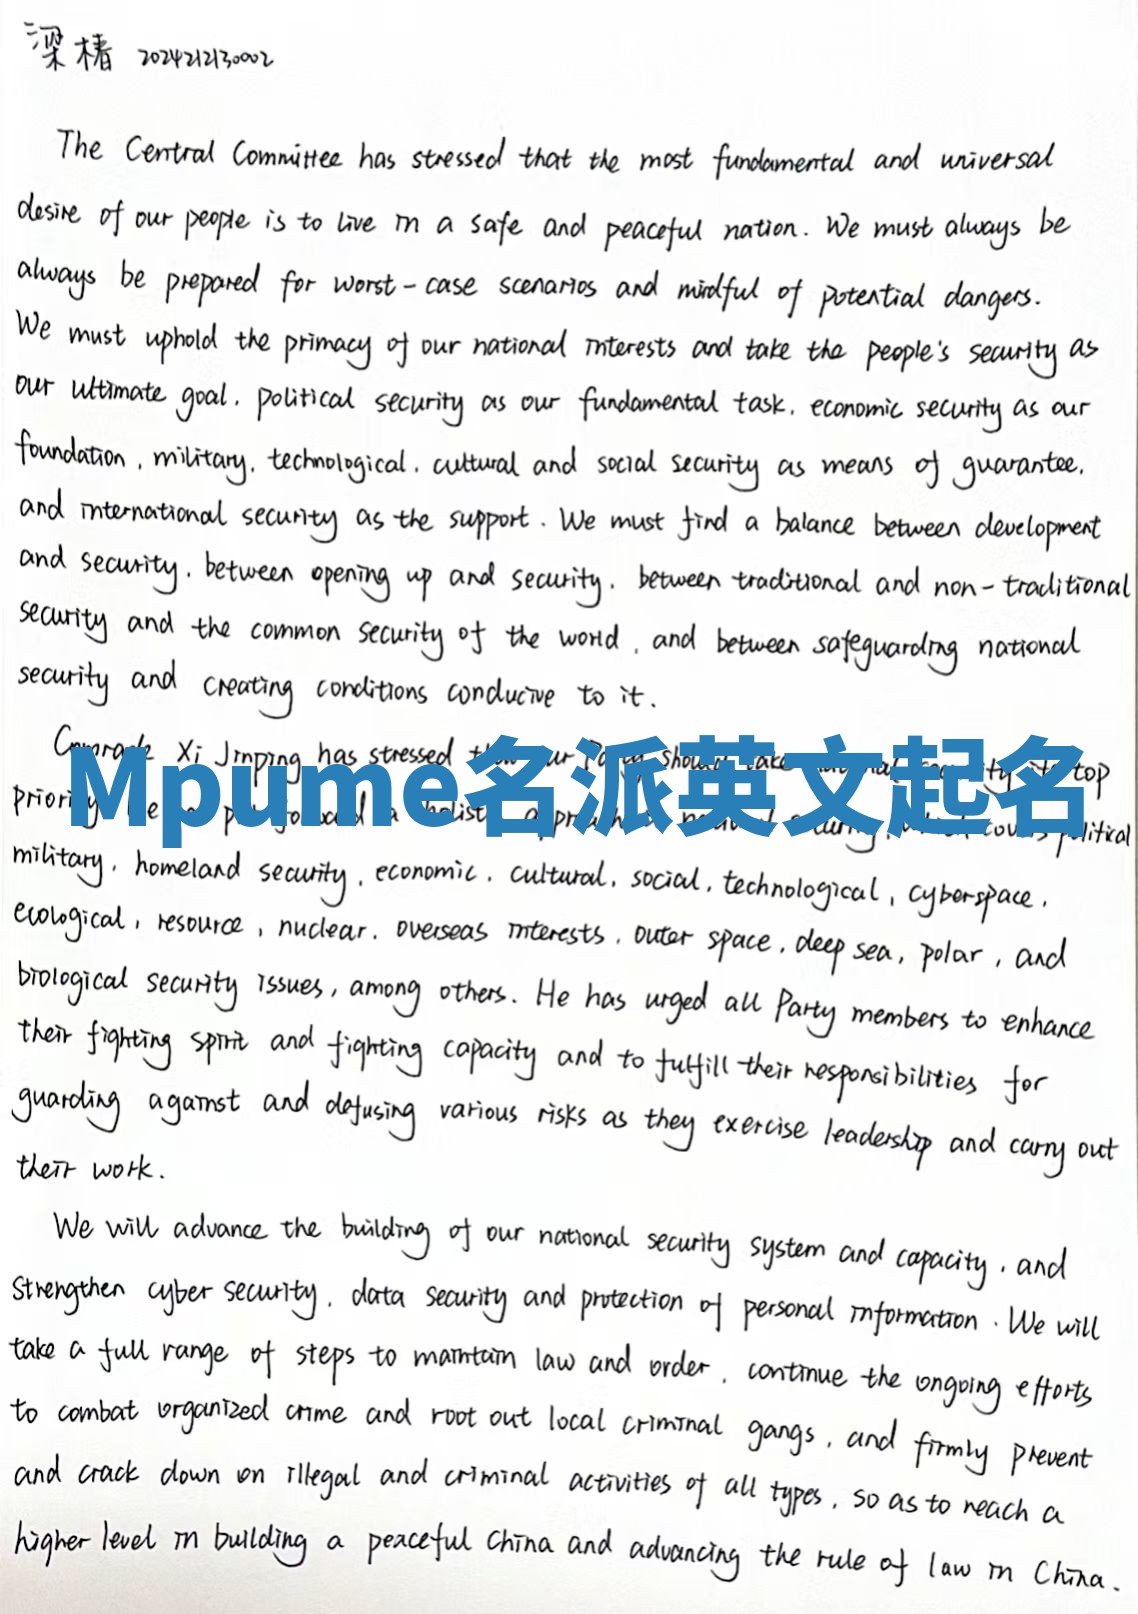 梁椿 2024212130002
The Central Committee has stressed that the most fundamental and universal
desire of our people is to live in a safe and peaceful nation. We must always be
always be prepared for worst-case scenarios and mindful of potential dangers.
We must uphold the primacy of our national interests and take the people's security as
our ultimate goal, political security as our fundamental task, economic security as our
foundation, military, technological, cultural and social security as means of guarantee,
and international security as the support. We must find a balance between development
and security, between opening up and security, between traditional and non-traditional
security and the common security of the world, and between safeguarding national
security and creating conditions conducive to it.
Comrade Xi Jinping has stressed our Party should take top
Mpume名派英文起名
priority political
military, homeland security, economic, cultural, social, technological, cyberspace,
ecological, resource, nuclear, overseas interests, outer space, deep sea, polar, and
biological security issues, among others. He has urged all Party members to enhance
their fighting spirit and fighting capacity and to fulfill their responsibilities for
guarding against and defusing various risks as they exercise leadership and carry out
their work.
We will advance the building of our national security system and capacity, and
strengthen cyber security, data security and protection of personal information. We will
take a full range of steps to maintain law and order, continue the ongoing efforts
to combat organized crime and root out local criminal gangs, and firmly prevent
and crack down on illegal and criminal activities of all types, so as to reach a
higher level in building a peaceful China and advancing the rule of law in China.